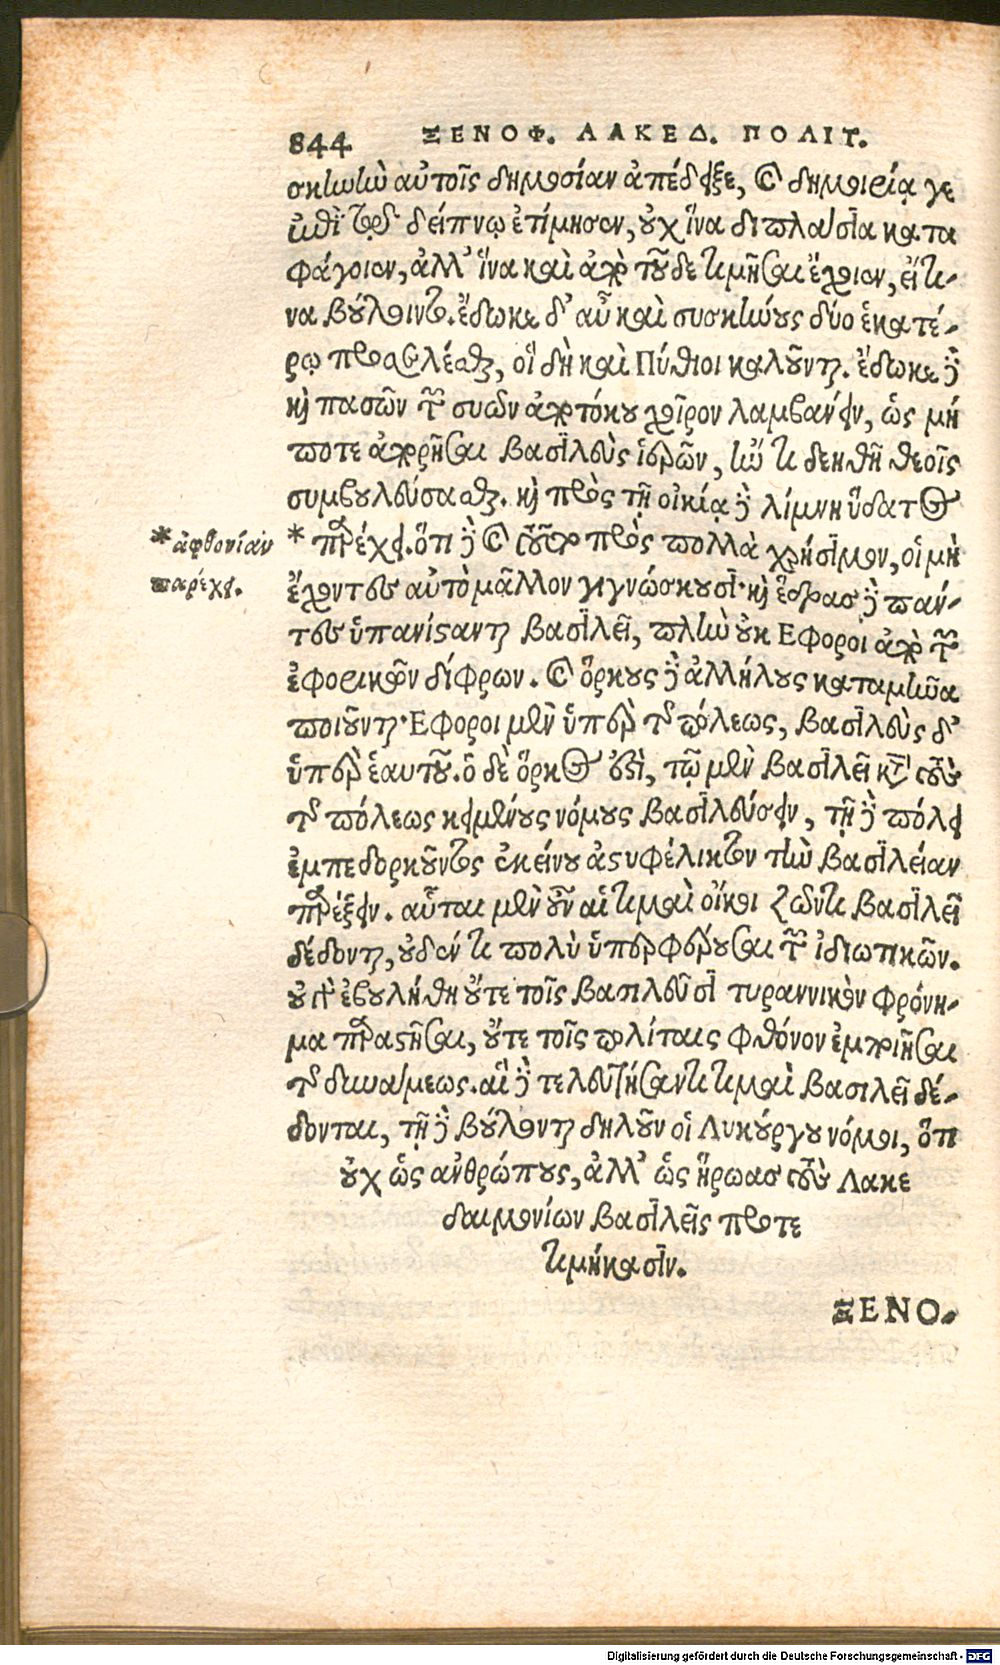 844 ΞΕΝΟΦ. ΛΑΚΕΔ. ΠΟΛΙΤ.
σκηνὴν αὐτοῖς δημοσίαν ἀπέδειξε, καὶ διμοιρίᾳ γε
ἐπὶ τῷ δείπνῳ ἐτίμησεν, οὐχ ἵνα διπλάσια κατα
φάγοιεν, ἀλλ' ἵνα καὶ ἀπὸ τοῦδε τιμῆσαι ἔχοιεν, εἴ τι-
να βούλοιντο. ἔδωκε δ' αὖ καὶ συσκήνους δύο ἑκατέ-
ρῳ προσελέσθαι, οἳ δὴ καὶ Πύθιοι καλοῦνται. ἔδωκε δὲ
καὶ πασῶν τῶν συῶν ἀπὸ τόκου χοῖρον λαμβάνειν, ὡς μή
ποτε ἀπορῆσαι βασιλεὺς ἱερῶν, ἤν τι δεηθῇ θεοῖς
συμβουλεύσασθαι. καὶ πρὸς τῇ οἰκίᾳ δὲ λίμνη ὕδατος
*ἀφθονίαν
παρέχει.
* παρέχει. ὅτι δὲ καὶ τοῦτο πρὸς πολλὰ χρήσιμον, οἱ μὴ
ἔχοντες αὐτὸ μᾶλλον γιγνώσκουσι. καὶ ἕδρας δὲ πάν-
τες ὑπανίστανται βασιλεῖ, πλὴν οὐκ Ἔφοροι ἀπὸ τῶν
ἐφορικῶν δίφρων. καὶ ὅρκους δὲ ἀλλήλους κατὰ μῆνα
ποιοῦνται. Ἔφοροι μὲν ὑπὲρ τῆς πόλεως, βασιλεὺς δ'
ὑπὲρ ἑαυτοῦ. ὁ δὲ ὅρκος ἐστὶ, τῷ μὲν βασιλεῖ κατὰ τοὺς
τῆς πόλεως κειμένους νόμους βασιλεύσειν, τῇ δὲ πόλει
ἐμπεδορκοῦντος ἐκείνου ἀστυφέλικτον τὴν βασιλείαν
παρέξειν. αὗται μὲν οὖν αἱ τιμαὶ οἴκοι ζῶντι βασιλεῖ
δέδονται, οὐδέν τι πολὺ ὑπερφέρουσαι τῶν ἰδιωτικῶν.
οὐ γὰρ ἐβουλήθη οὔτε τοῖς βασιλεῦσι τυραννικὸν φρόνη-
μα παραστῆσαι, οὔτε τοῖς πολίταις φθόνον ἐμποιῆσαι
τῆς δυνάμεως. αἳ δὲ τελευτήσαντι τιμαὶ βασιλεῖ δέ-
δονται, τῇδε βούλονται δηλοῦν οἱ Λυκούργου νόμοι, ὅτι
οὐχ ὡς ἀνθρώπους, ἀλλ' ὡς ἥρωας τοὺς Λακε
δαιμονίων βασιλεῖς προτε
τιμήκασιν.
ΞΕΝΟ-
Digitalisierung gefördert durch die Deutsche Forschungsgemeinschaft - DFG